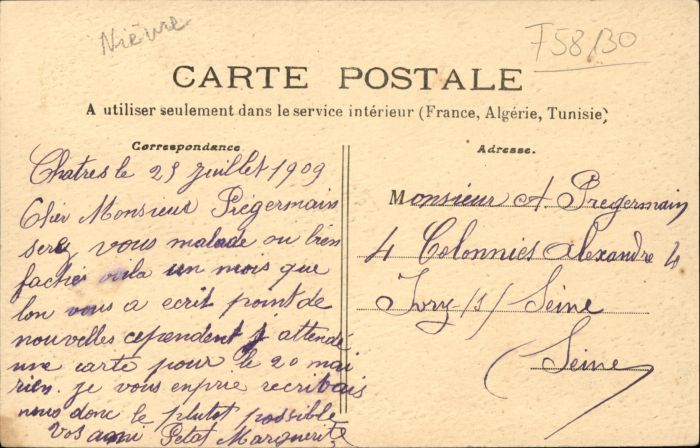 Nièvre
F58/30
CARTE POSTALE
A utiliser seulement dans le service intérieur (France, Algérie, Tunisie)
Correspondance
Chatres le 25 Juillet 1909
Cher Monsieur Prégermain
serez vous malade ou bien
fachér voila un mois que
lon vous a ecrit point de
nouvelles cependent j attendé
une carte pour le 20 mai
rien. je vous enprie recribais
nous donc le plutot possible
Vos ami Petat Marguerite
Adresse.
Monsieur A Pregermain
4 Colonnies Alexandre 4
Ivry /s/ Seine
(Seine)